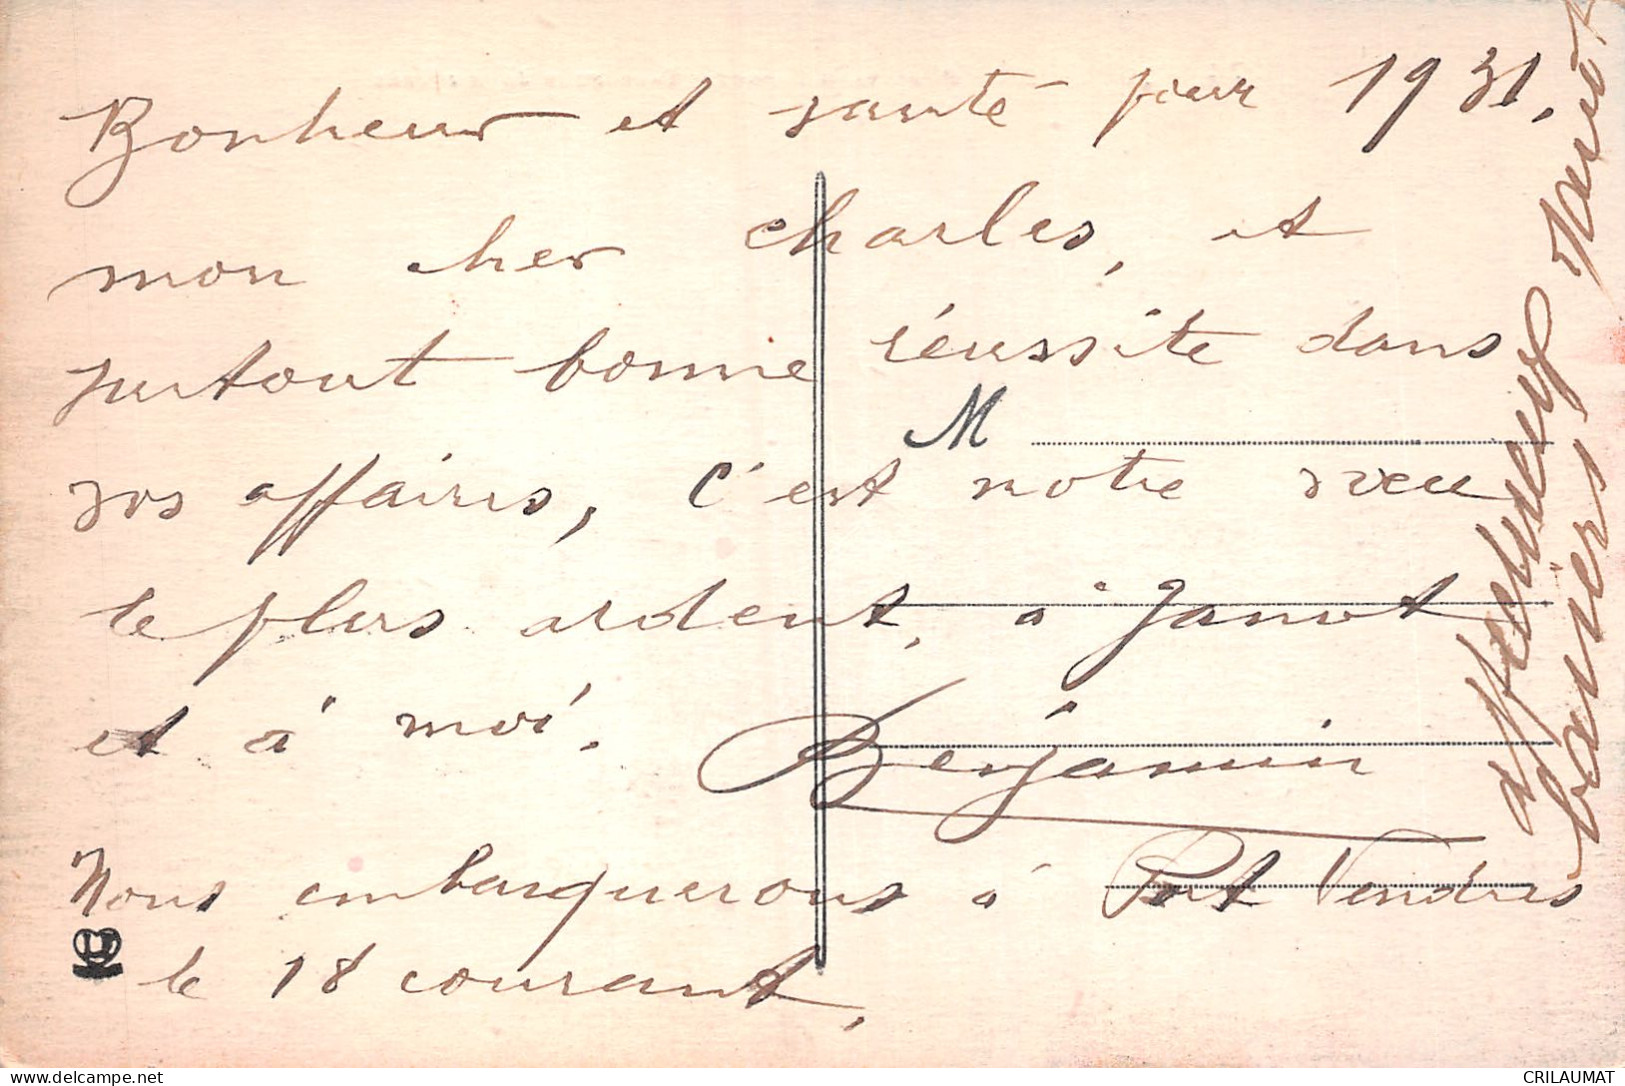 Bonheur et santé pour 1931,
mon cher Charles, et
surtout bonne réussite dans
vos affaires, c'est notre voeu
le plus ardent, à Janot
et à moi.
Benjamin
Nous embarquerons à Port Vendres
le 18 courant.
M
affectueux
baisers
CRILAUMAT